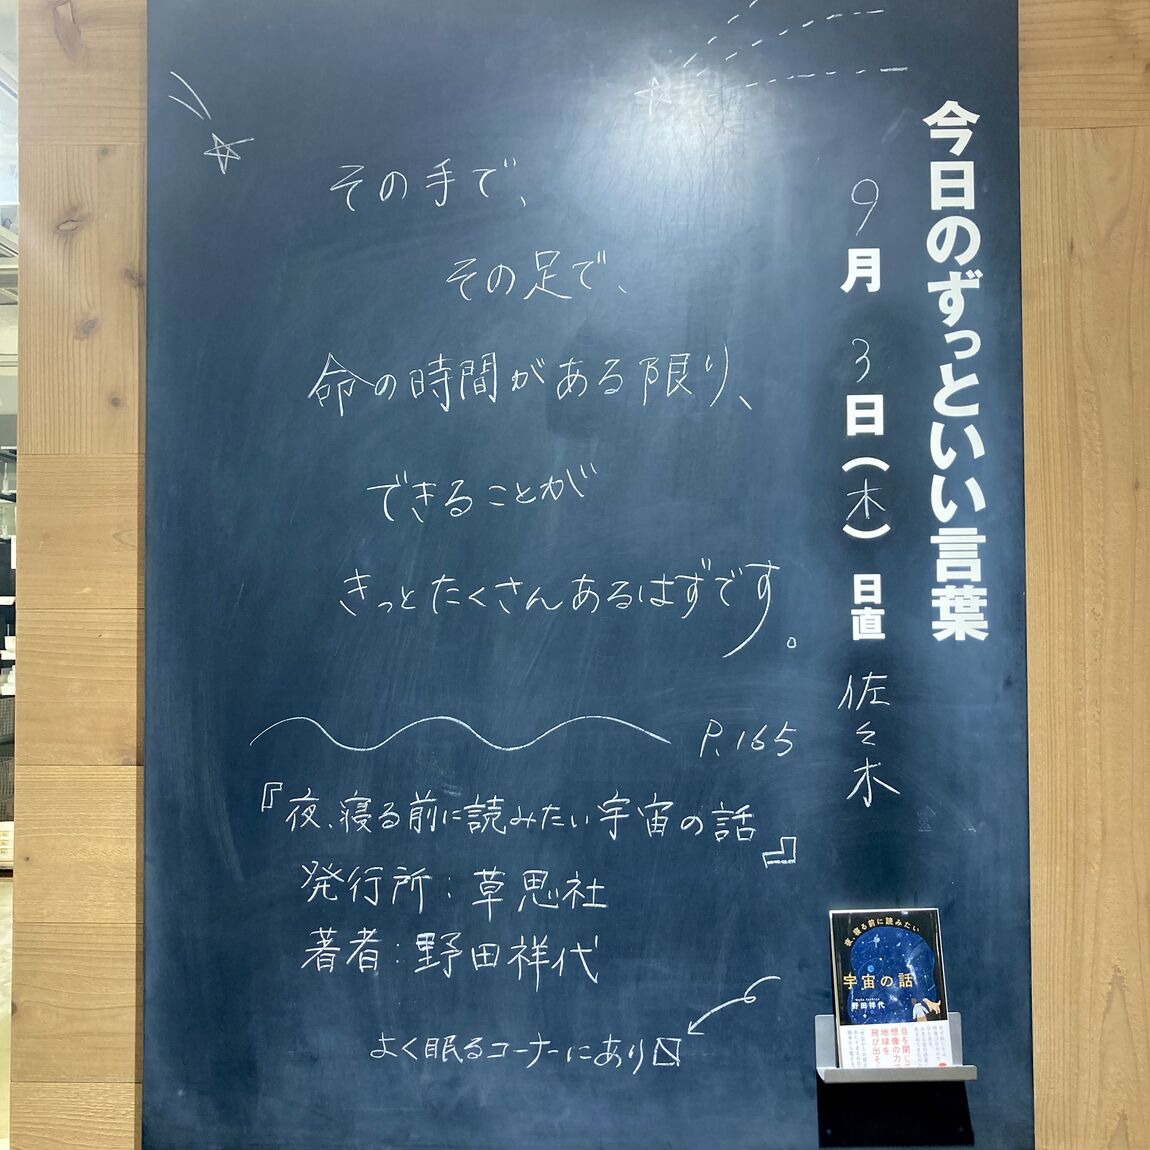 今日のずっといい言葉
9月3日(木) 日直 佐々木
その手で、
その足で、
命の時間がある限り、
できることが
きっとたくさんあるはずです。
P.165
『夜、寝る前に読みたい宇宙の話』
発行所:草思社
著者:野田祥代
よく眠るコーナーにあり〼
夜、寝る前に読みたい
宇宙の話
野田祥代
目を閉じて
想像の力で
地球を
飛び出そ